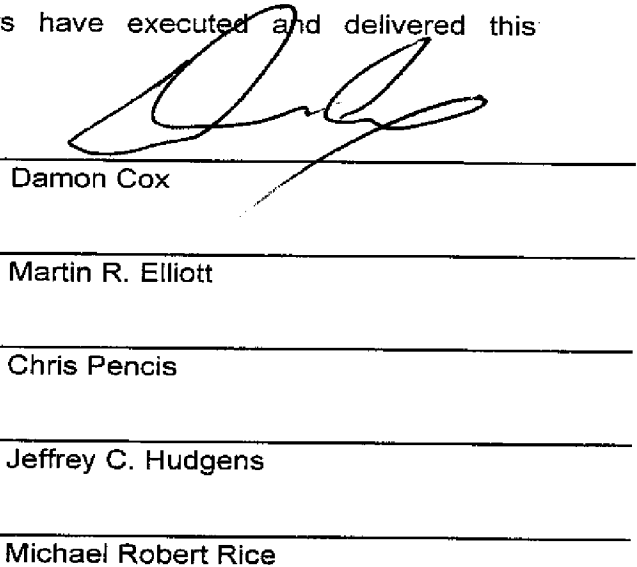 s have executed and delivered this
Damon Cox
Martin R. Elliott
Chris Pencis
Jeffrey C. Hudgens
Michael Robert Rice